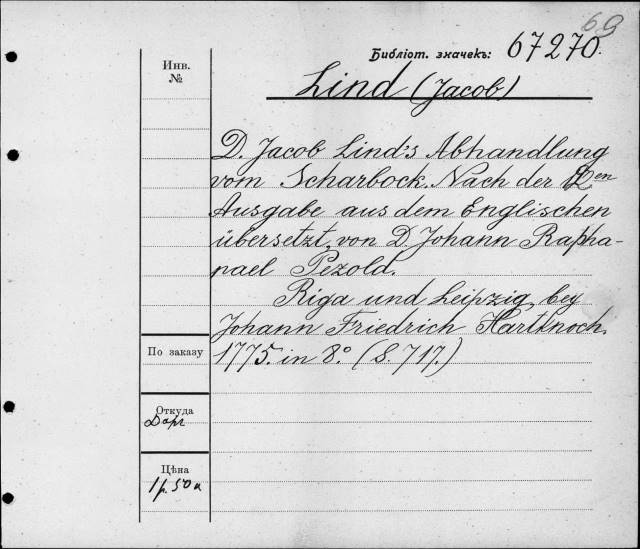 69
Библіот. значекъ: 67270.
Инв.
№
Lind (Jacob)
D. Jacob Lind's Abhandlung
vom Scharbock. Nach der 2en
Ausgabe aus dem Englischen
übersetzt, von D. Johann Rapha-
nael Pezold.
Riga und Leipzig, bey
Johann Friedrich Hartknoch.
По заказу
1775. in 8.° (S. 717.)
Откуда
Цѣна
1 р. 50 к